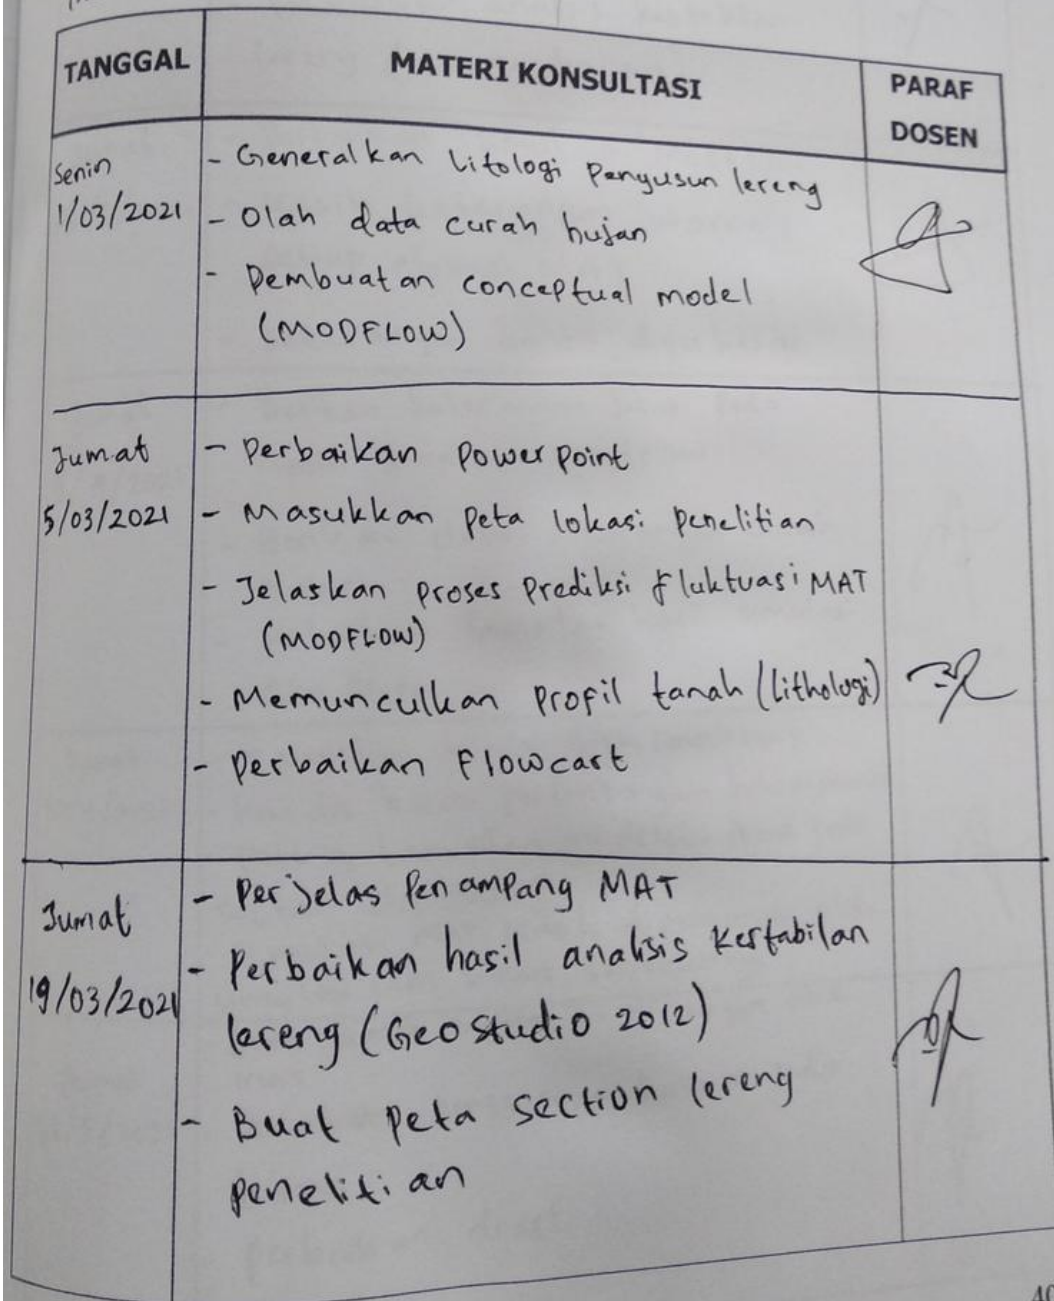 TANGGAL
MATERI KONSULTASI
PARAF
DOSEN
Senin
1/03/2021
- Generalkan litologi penyusun lereng
- Olah data curah hujan
- Pembuatan conceptual model
(MODFLOW)
Jumat
5/03/2021
- Perbaikan Powerpoint
- Masukkan peta lokasi penelitian
- Jelaskan proses prediksi fluktuasi MAT
(MODFLOW)
- Memunculkan profil tanah (lithologi)
- Perbaikan Flowcart
Jumat
19/03/2021
- Perjelas Penampang MAT
- Perbaikan hasil analisis kestabilan
lereng (Geostudio 2012)
- Buat peta section lereng
penelitian